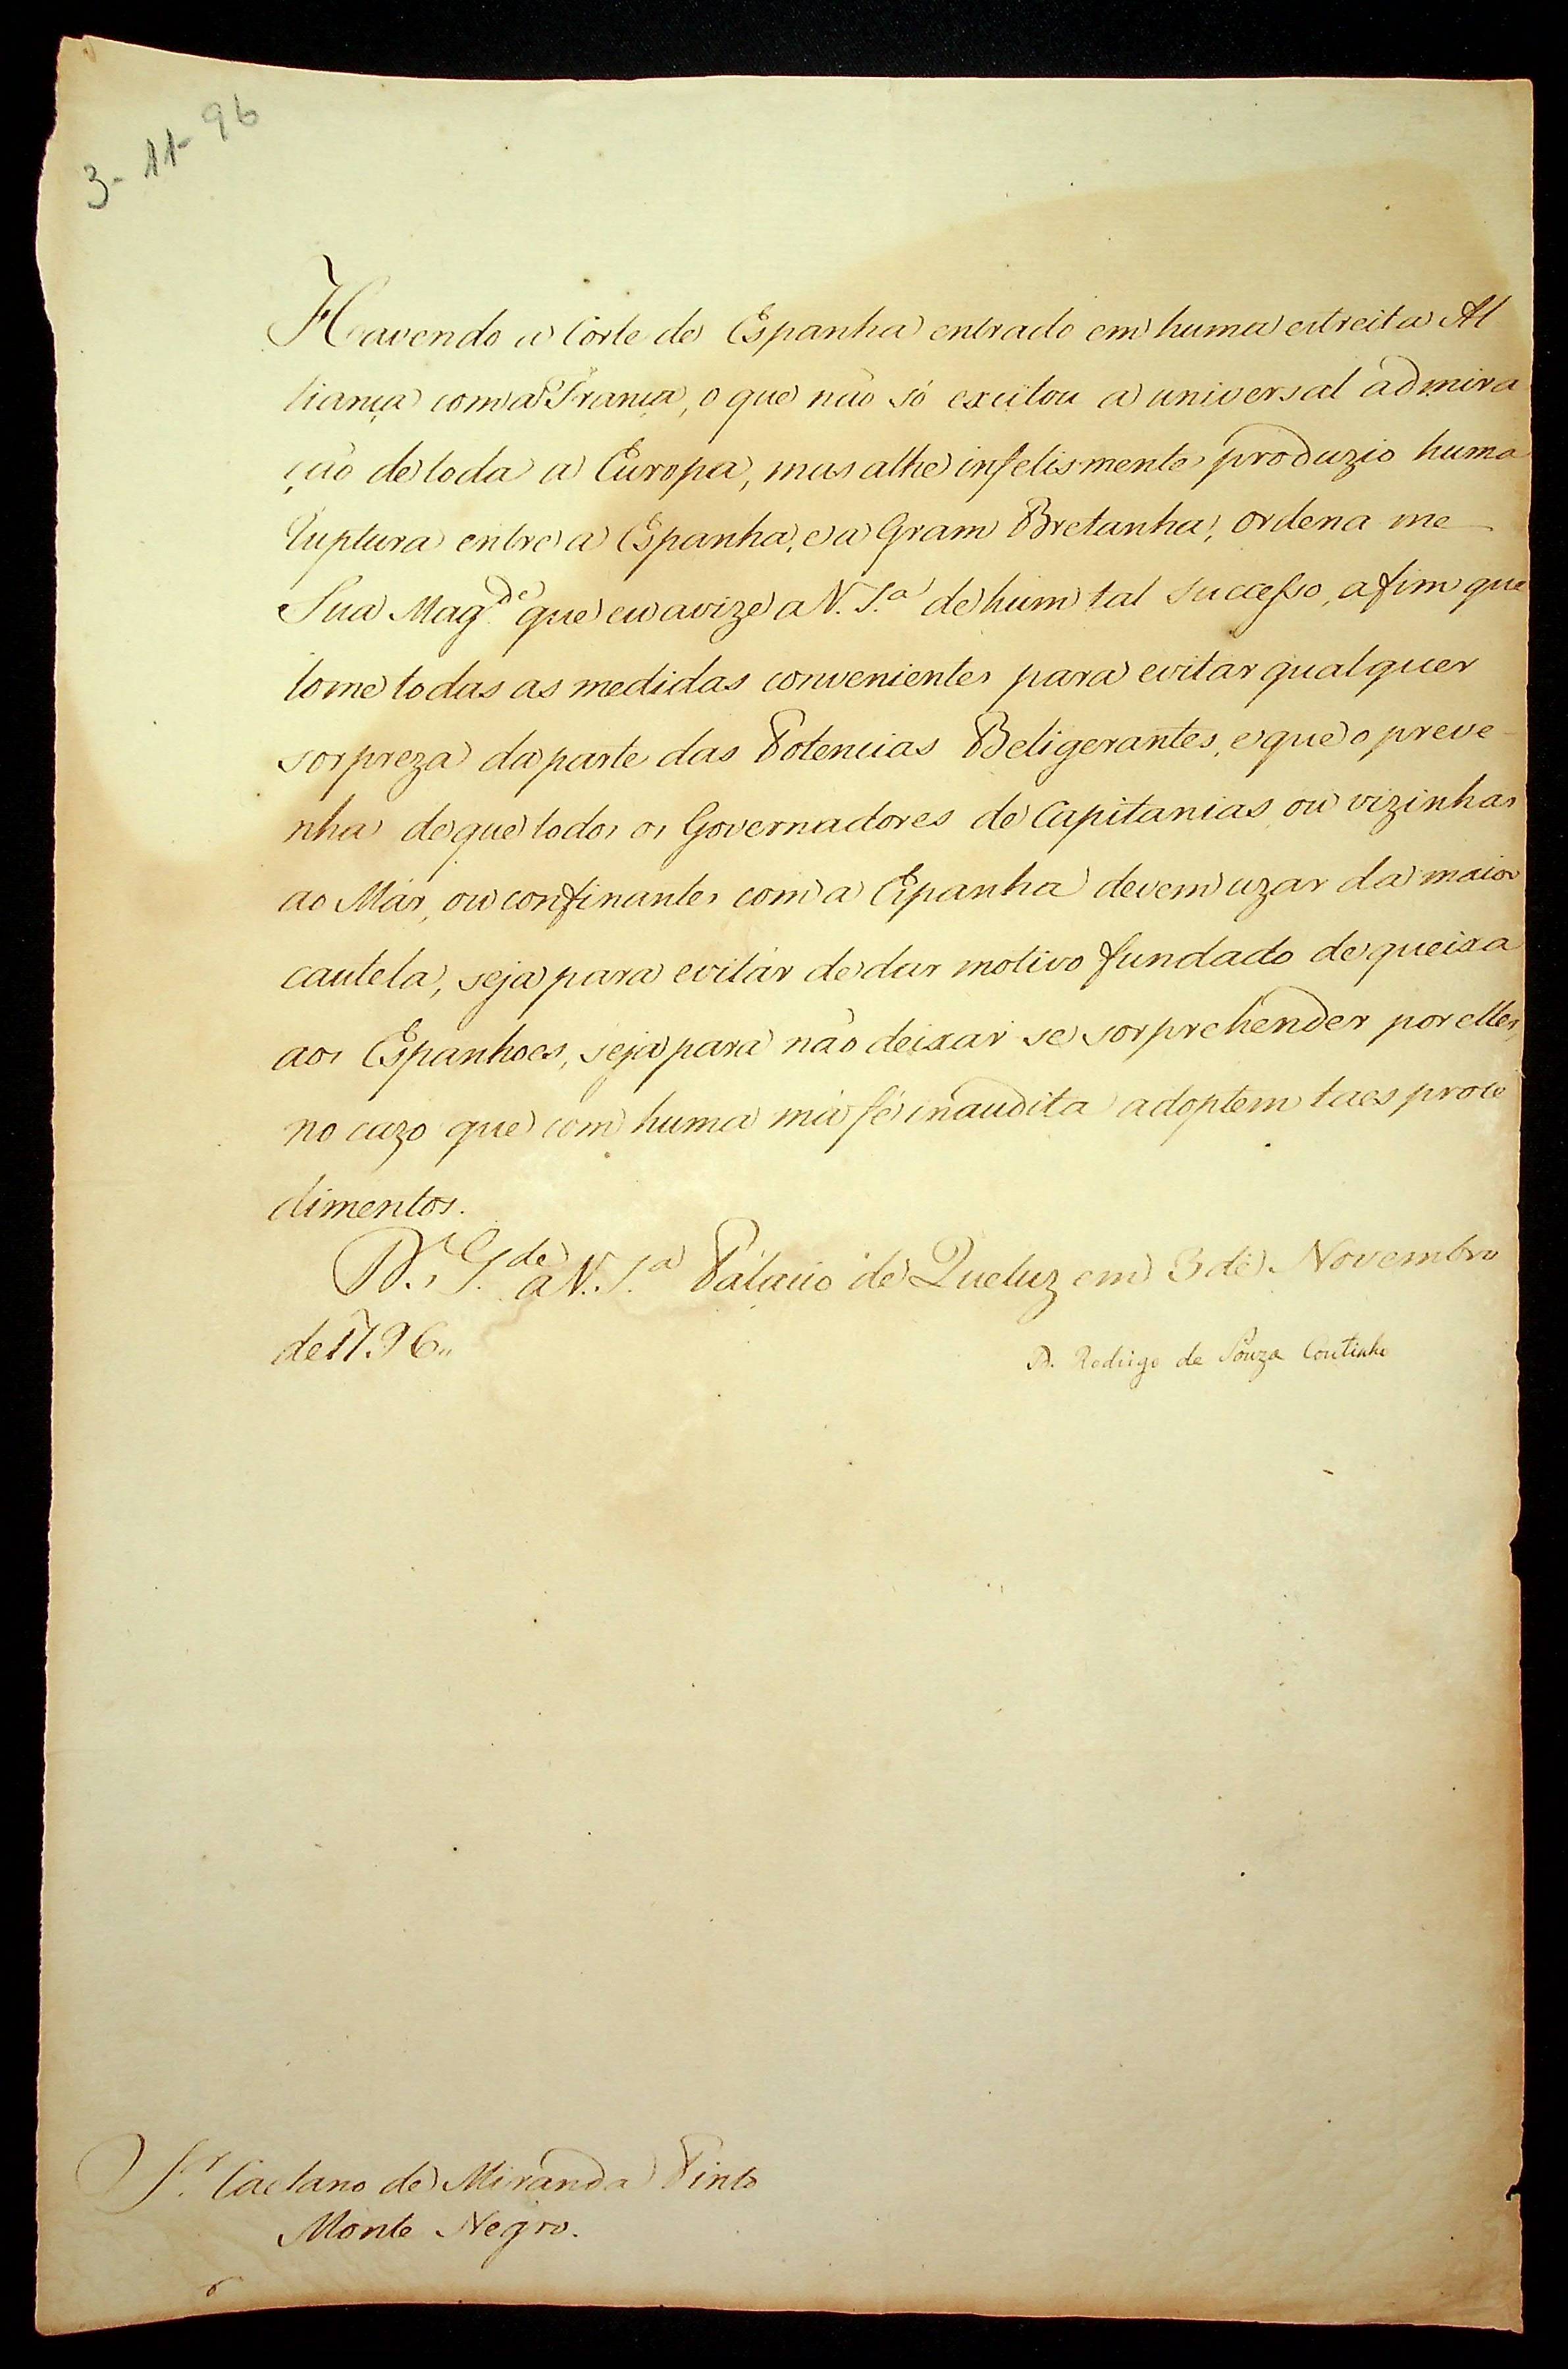 3-11-96
Havendo a Corte de Espanha entrado em huma estreita Al
liança com a França, o que não só excitou a universal admira
ção de toda a Europa, mas athe infelismente produzio huma
ruptura entre a Espanha, e a Gram Bretanha, ordena me
Sua Mag.de que eu avize a V. S.a de hum tal successo, afim que
tome todas as medidas convenientes para evitar qualquer
sorpreza da parte das Potencias Beligerantes, e que o preve-
nha de que todos os Governadores de Capitanias ou vizinhas
ao Mar, ou confinantes com a Espanha devem uzar da maior
cautela, seja para evitar de dar motivo fundado de queixa
aos Espanhoes, seja para não deixar se sorprehender por elles,
no cazo que com huma má fé inaudita adoptem taes proce
dimentos.
D.s G.de a V. S.a Palacio de Queluz em 3 de Novembro
de 1796.
D. Rodrigo de Souza Coutinho
S.r Caetano de Miranda Pinto
Monte Negro.